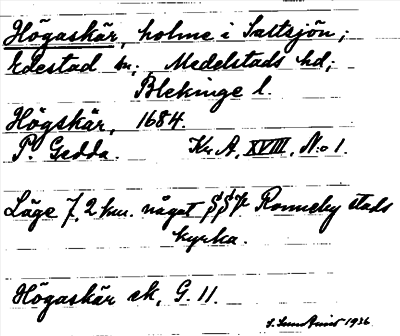 Högaskär, holme i Saltsjön;
Edestad sn; Medelstads hd;
Blekinge l.
Högskär, 1684.
P. Gedda. Kr. A. XVIII. No 1.
Läge 7,2 km. något Ronneby stads
kyrka.
Högaskär ek, G. 11.
1936